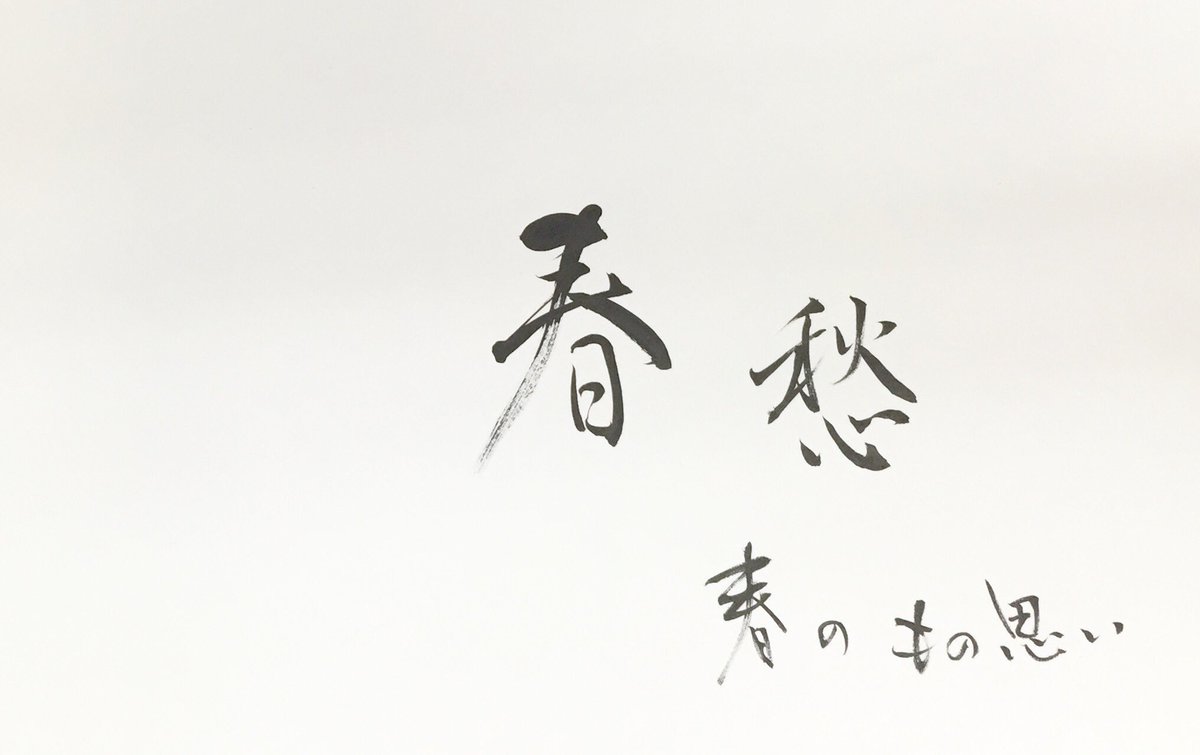 春愁
春のもの思い